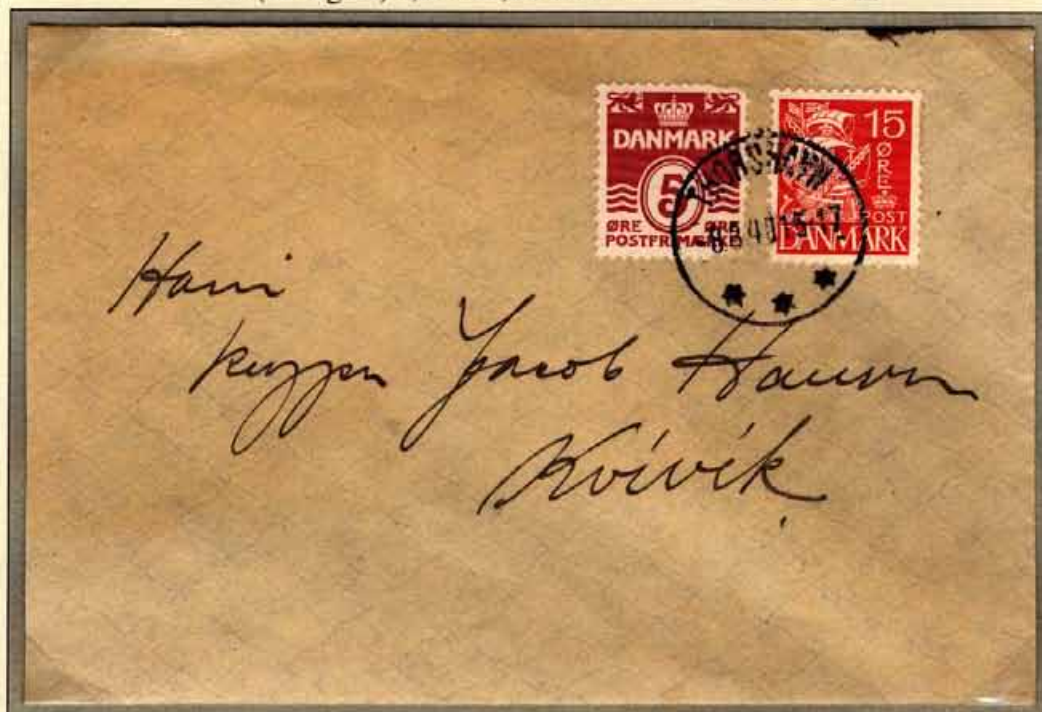 DANMARK
5
ØRE ØRE
POSTFRIMÆRKE
15
ØRE
POST
DANMARK
THORSHAVN
40 15-17
Jacob Hansen
Kvívík